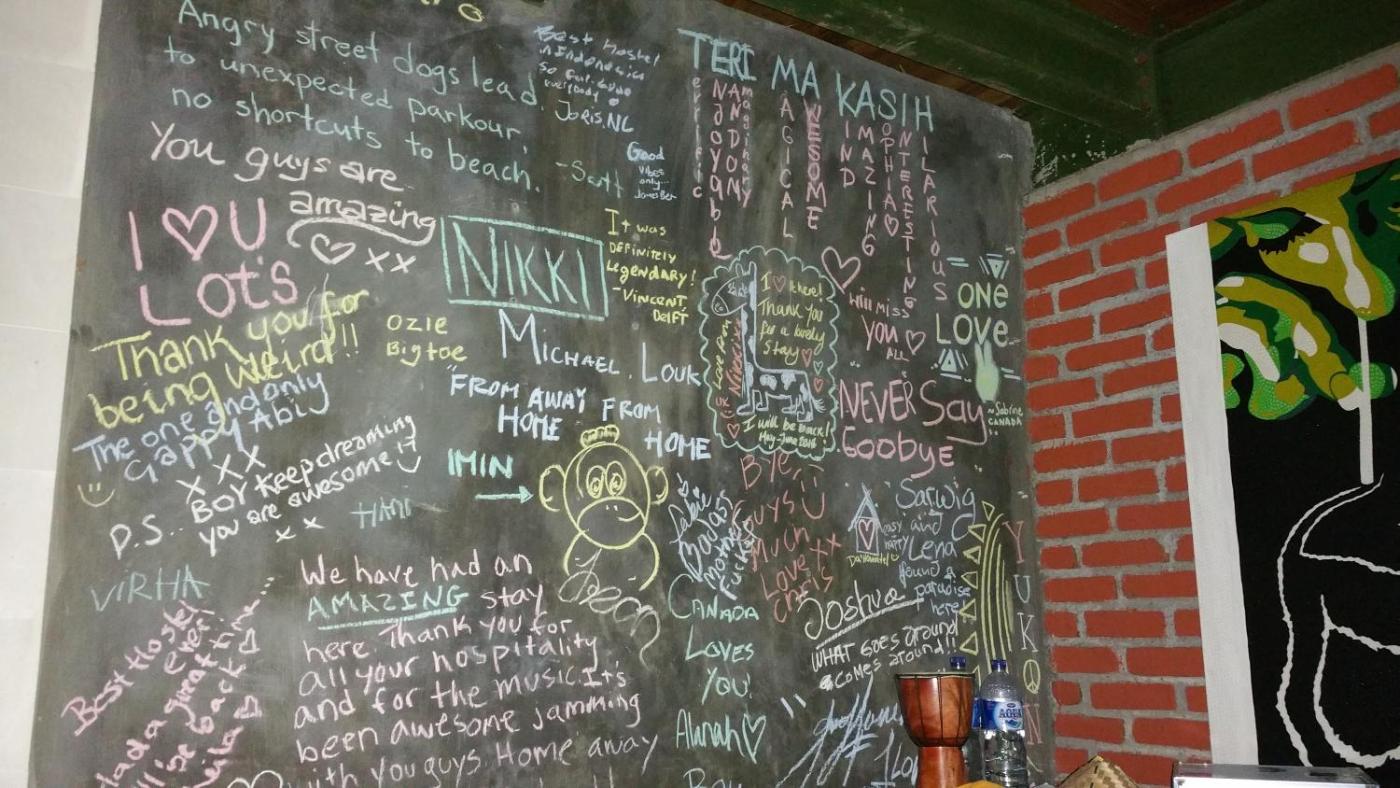 Angry street dogs lead
to unexpected parkour,
no shortcuts to beach.
-Scott
Best Hostel
in Indonesia
so
everybody
Joris.NL
Good
vibes
only...
You guys are
amazing
xx
I ♡ U
Lots
NIKKI
It was
DEFINITELY
Legendary!
-VINCENT
DELFT
TERI MA KASIH
errific
NJOY
NANDI
MAGICAL
AWESOME
KIND
AMAZING
SOPHIA♡
INTERESTING
HILARIOUS
will miss
you ♡
ALL
ONE
LOVE
~Sabrine
CANADA
Thank you for
being weird!!
OZIE
Bigtoe
MICHAEL. LOUK
"FROM AWAY FROM
HOME
HOME
The one and only
Gappy Abi
xxx
P.S.. BOY keep dreaming
you are awesome
xx
I ♡ it here!
Thank you
for a lovely
stay
Love from
Nikki xx
UK
I will be back!
May-June 2016
NEVER Say
Goobye
IMIN
HANI
VIRHA
Bye,
Guys
Much
Love xx
chris
Sarwig
and
Lena
found a
paradise
here
easy
happy
YUKON
We have had an
AMAZING stay
here. Thank you for
all your hospitality
and for the music. It's
been awesome jamming
with you guys. Home away
Best Hostel
ever!
Hada great time...
ll be back ♡
CANADA
LOVES
YOU
Alanah♡
Joshua
WHAT GOES around
COMES around!!
AQUA